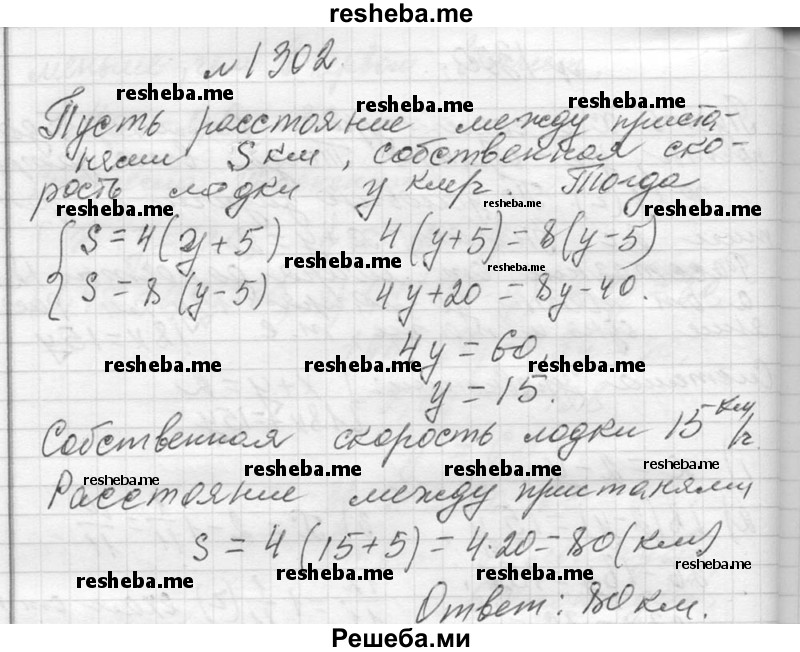 resheba.me
№1302.
resheba.me resheba.me resheba.me
Пусть расстояние между приста-
нями S км, собственная ско-
рость лодки y км/ч. Тогда
resheba.me resheba.me resheba.me
S=4(y+5) 4(y+5)=8(y-5)
resheba.me resheba.me
S=8(y-5) 4y+20=8y-40.
4y=60,
resheba.me resheba.me resheba.me
y=15.
Собственная скорость лодки 15 км/ч.
resheba.me resheba.me resheba.me resheba.me
Расстояние между пристанями
S=4(15+5)=4·20=80(км)
resheba.me resheba.me resheba.me resheba.me
Ответ: 80 км.
Решеба.ми